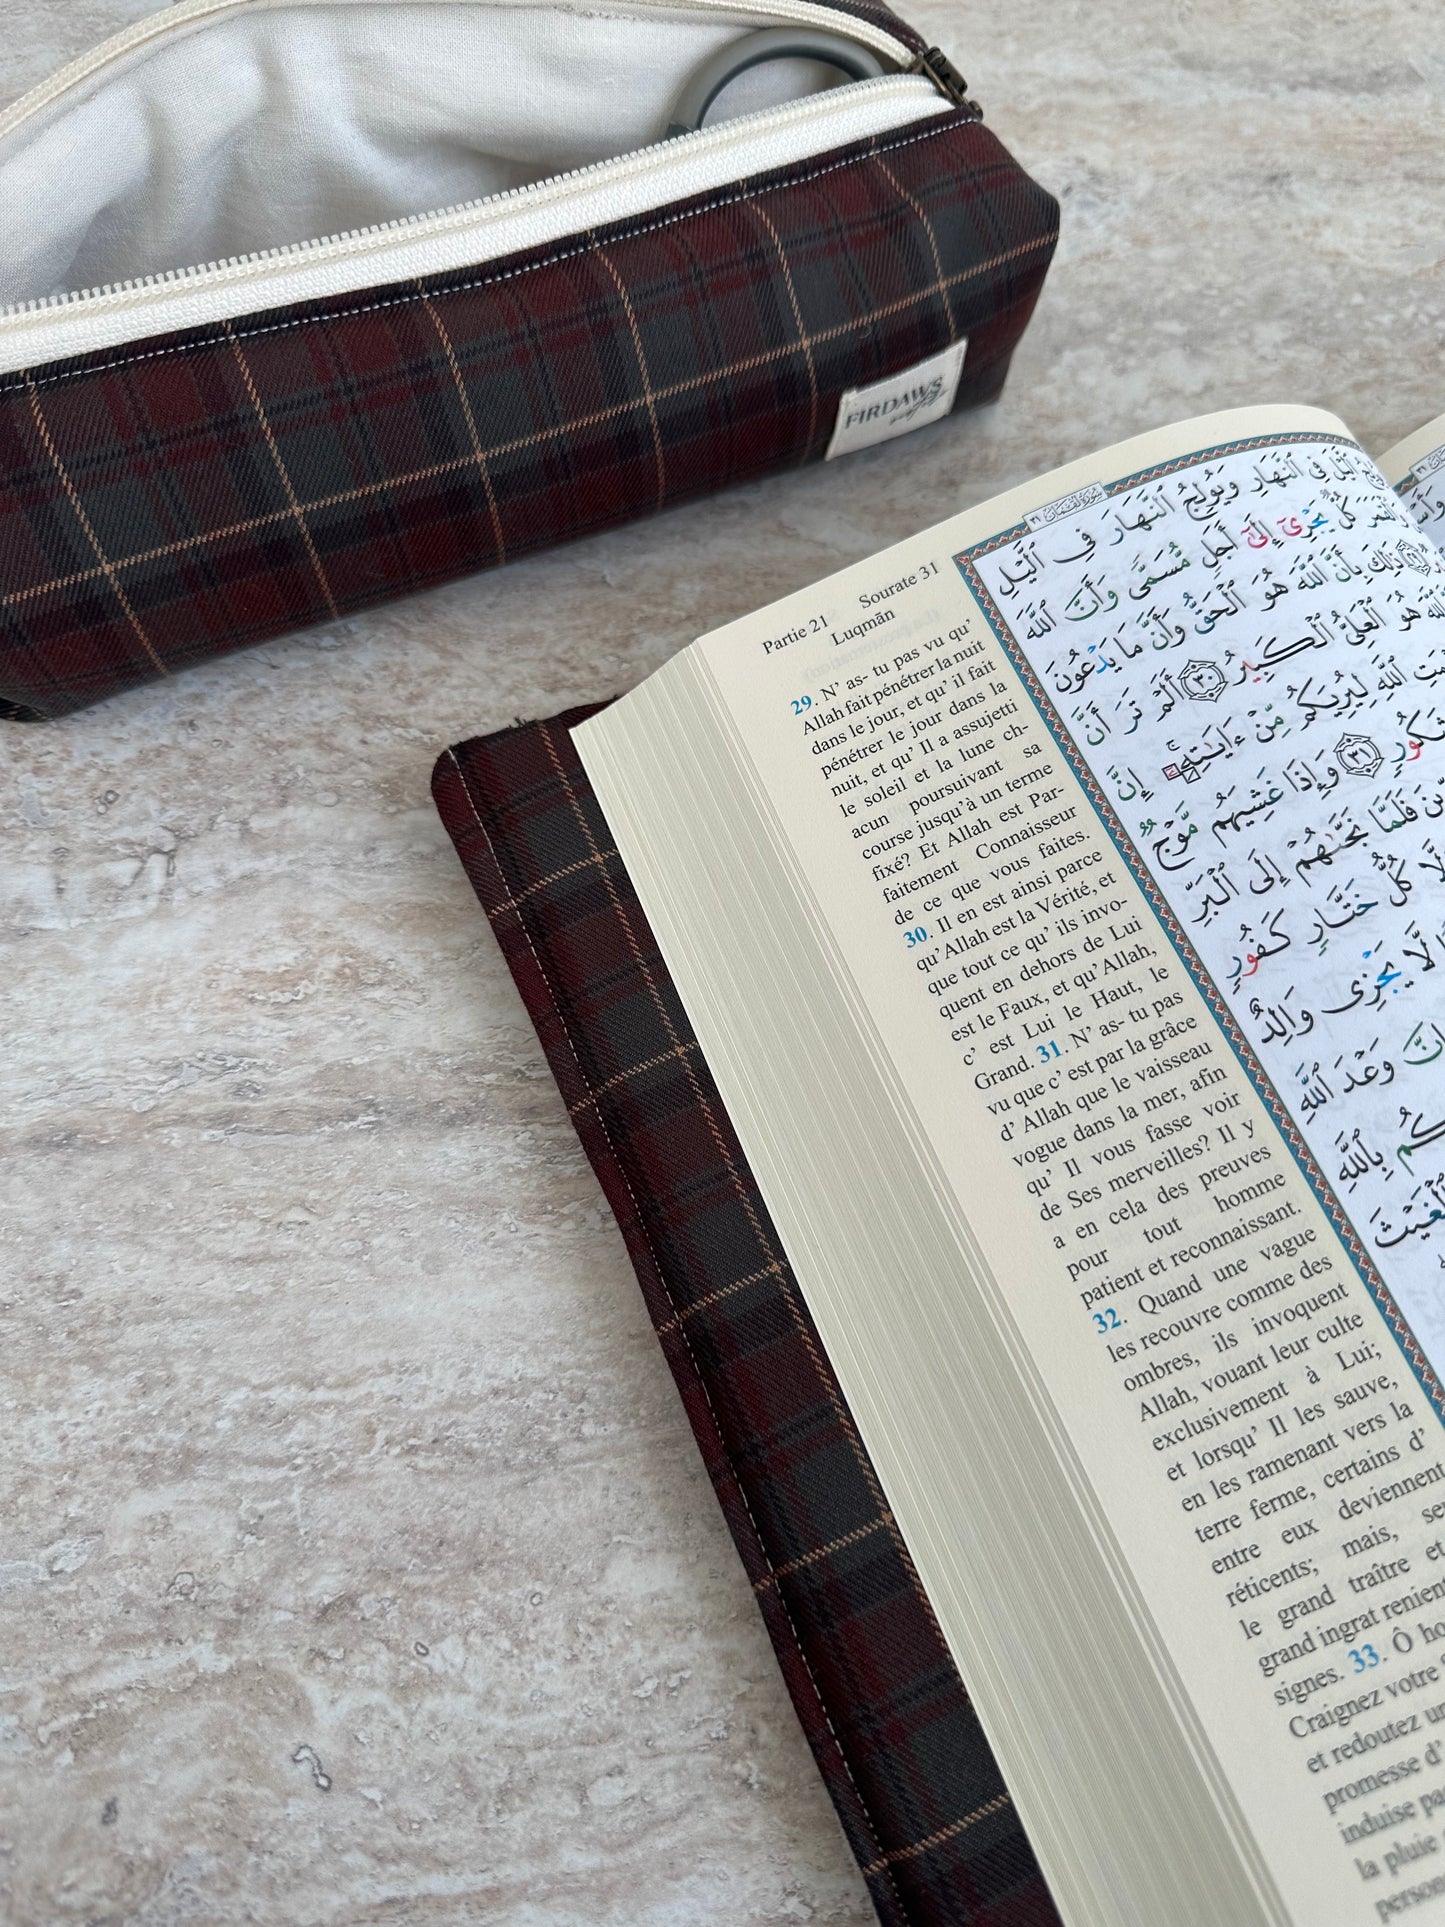 FIRDAWS
Partie 21
Sourate 31
Luqmān
29. N' as- tu pas vu qu'
Allah fait pénétrer la nuit
dans le jour, et qu' il fait
pénétrer le jour dans la
nuit, et qu' Il a assujetti
le soleil et la lune ch-
acun poursuivant sa
course jusqu'à un terme
fixé? Et Allah est Par-
faitement Connaisseur
de ce que vous faites.
30. Il en est ainsi parce
qu'Allah est la Vérité, et
que tout ce qu' ils invo-
quent en dehors de Lui
est le Faux, et qu'Allah,
c' est Lui le Haut, le
Grand. 31. N' as- tu pas
vu que c' est par la grâce
d' Allah que le vaisseau
vogue dans la mer, afin
qu' Il vous fasse voir
de Ses merveilles? Il y
a en cela des preuves
pour tout homme
patient et reconnaissant.
32. Quand une vague
les recouvre comme des
ombres, ils invoquent
Allah, vouant leur culte
exclusivement à Lui;
et lorsqu' Il les sauve,
en les ramenant vers la
terre ferme, certains d'
entre eux deviennent
réticents; mais,
le grand traître et
grand ingrat renient
signes. 33. Ô
Craignez votre
et redoutez un
promesse d'
induise
la pluie
سورة لقمان ٣١
ٱلَّيْلَ فِى ٱلنَّهَارِ وَيُولِجُ ٱلنَّهَارَ فِى ٱلَّيْلِ
كُلٌّ يَجْرِىٓ إِلَىٰٓ أَجَلٍ مُّسَمًّى وَأَنَّ ٱللَّهَ
ذَٰلِكَ بِأَنَّ ٱللَّهَ هُوَ ٱلْحَقُّ وَأَنَّ مَا يَدْعُونَ
ٱللَّهَ هُوَ ٱلْعَلِىُّ ٱلْكَبِيرُ ٣٠ أَلَمْ تَرَ أَنَّ
ٱللَّهِ لِيُرِيَكُم مِّنْ ءَايَٰتِهِۦٓ إِنَّ
شَكُورٍ ٣١ وَإِذَا غَشِيَهُم مَّوْجٌ
فَلَمَّا نَجَّىٰهُمْ إِلَى ٱلْبَرِّ
كُلُّ خَتَّارٍ كَفُورٍ
لَّا يَجْزِى وَالِدٌ
وَعْدَ ٱللَّهِ
بِٱللَّهِ
ٱلْغَيْثَ